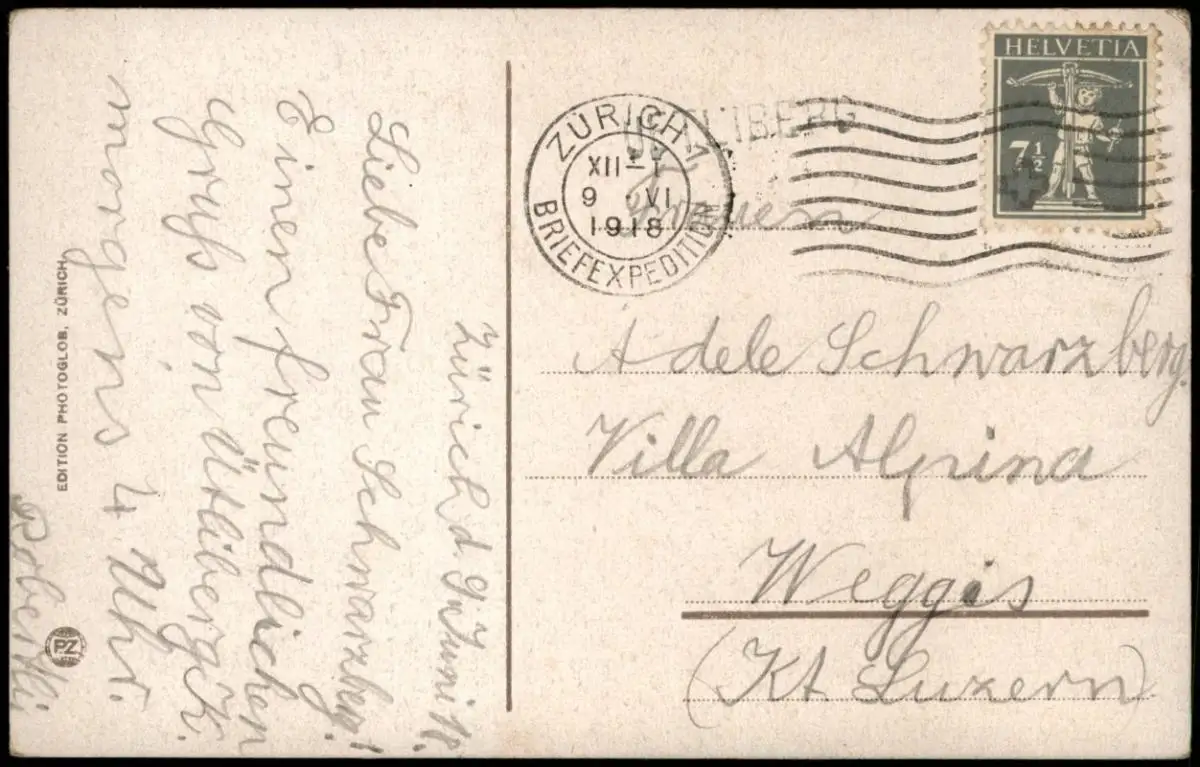 Zürich d. 9. Juni 18.
Liebe Frau Schwarzbg!
Einen freundlichen
Gruss von Ütliberg
morgens 4 Uhr.
EDITION PHOTOGLOB, ZÜRICH.
PZ
ZÜRICH 1
XII-I
9 VI
1918
BRIEFEXPEDITION
HELVETIA
7½
Adele Schwarzberg.
Villa Alpina
Weggis
(Kt. Luzern)